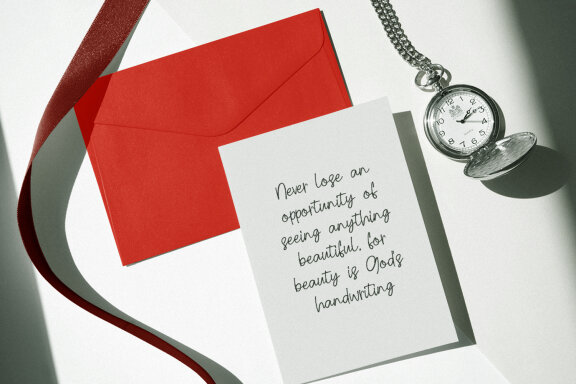 Never lose an
opportunity of
seeing anything
beautiful, for
beauty is God's
handwriting